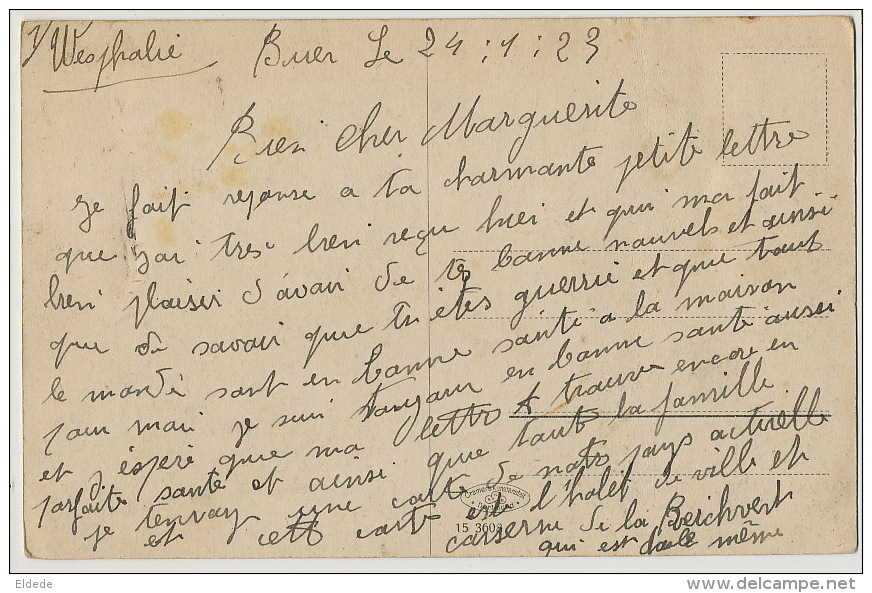 Westphalie Buer le 24:1:23
Bien cher Marguerite
Je fait reponse a ta charmante petite lettre
que j'ai tres bien reçu hier et qui ma fait
bien plaisir d'avoir de tes banne nouvels et ainsi
que de savoir que tu étes guerrie et que taut
le monde sont en banne santé a la maison
pour moi je suis taujour en banne santé aussi
et j'éspère que ma lettre te trauve encore en
parfaite santé et ainsi que taute la famille
je t'envoy une carte de notre pays actuelle
et cette carte est l'hotel de ville et
caserne de la
qui est même
15 3608
Eldede
delcampe.net